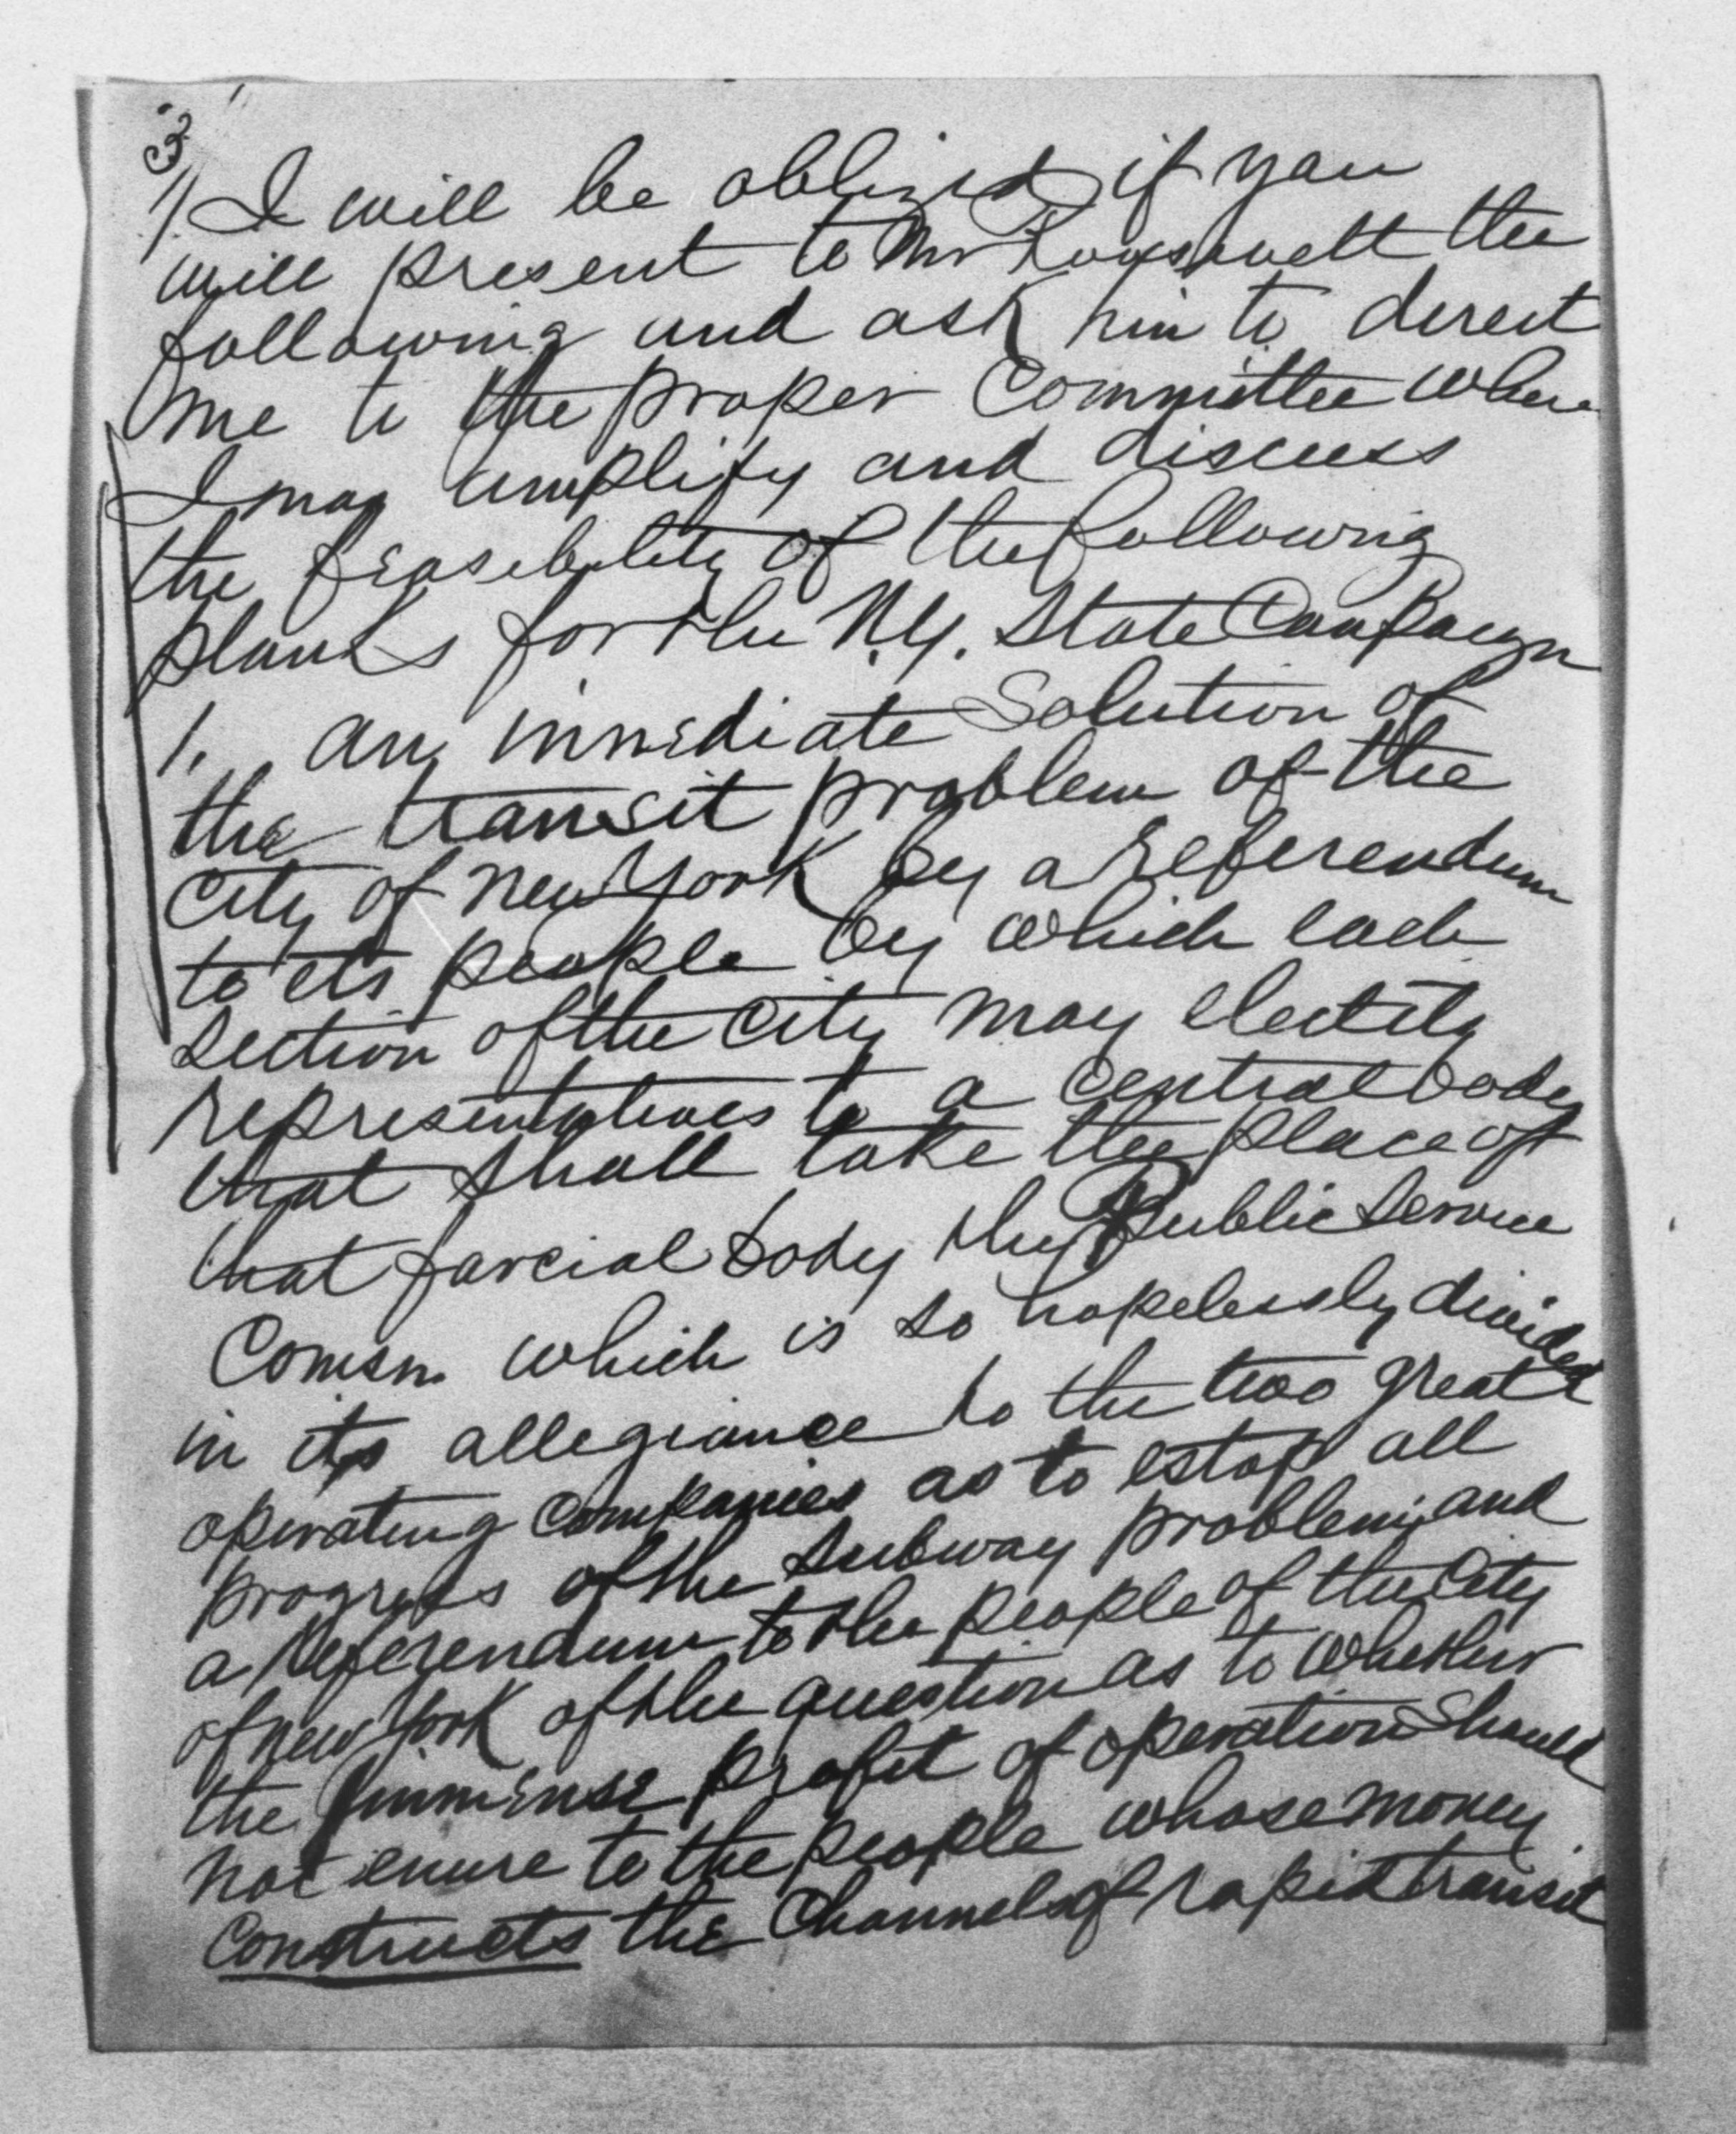 3
I will be obliged if you
will present to Mr Roosevelt the
following and ask him to direct
me to the proper Committee where
I may amplify and discuss
the feasibility of the following
planks for the N.Y. State Campaign
1. an immediate Solution of
the transit problem of the
City of New York by a referendum
to its people by which each
section of the City may elect its
representatives to a central body
that shall take the place of
that farcial body the Public Service
Comsn. which is so hopelessly divided
in its allegiance to the two great
operating companies as to estop all
progress of the subway problem and
a referendum to the people of the City
of New York of the question as to whether
the immense profit of operation should
not enure to the people whose money
constructs the Channels of rapid transit